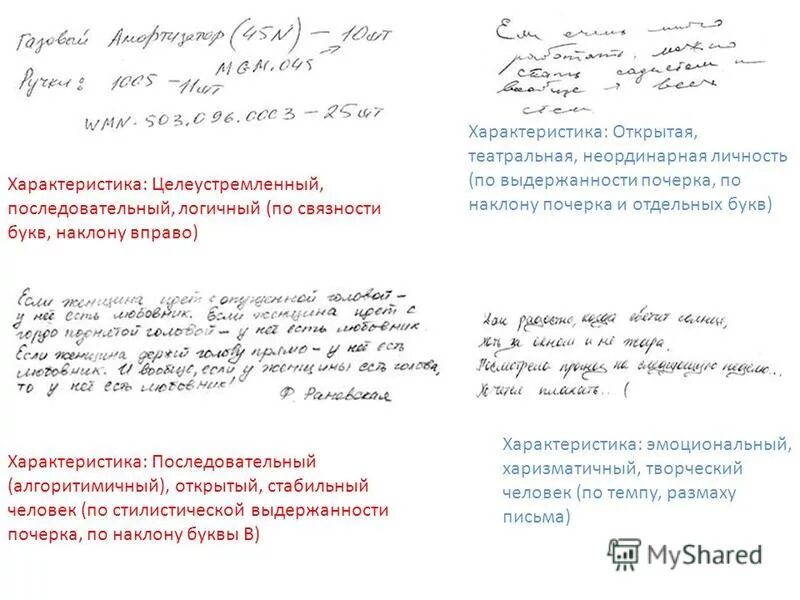 Газовый Амортизатор (45N) – 10 шт
MGM.045
Ручки: 1005 – 11шт
WMN.503.096.00C3 – 25 шт
Характеристика: Целеустремленный,
последовательный, логичный (по связности
букв, наклону вправо)
Если очень много
работать, можно
стать садистом и
вообще всем
Характеристика: Открытая,
театральная, неординарная личность
(по выдержанности почерка, по
наклону почерка и отдельных букв)
Если женщина идет с опущенной головой –
у неё есть любовник. Если женщина идет с
гордо поднятой головой – у неё есть любовник.
Если женщина держит голову прямо – у неё есть
любовник. И вообще, если у женщины есть голова,
то у неё есть любовник!
Ф. Раневская
Характеристика: Последовательный
(алгоритимичный), открытый, стабильный
человек (по стилистической выдержанности
почерка, по наклону буквы В)
Как радостно, когда светит солнце,
Хоть за окном и не жара.
Посмотрела прогноз на следующую неделю...
Хочется плакать.. (
Характеристика: эмоциональный,
харизматичный, творческий
человек (по темпу, размаху
письма)
MyShared